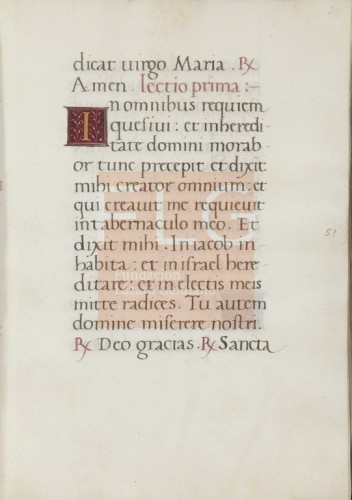 dicat uirgo Maria . ℟
Amen . lectio prima :~
In omnibus requiem
quesiui : et in heredi
tate domini morab
or tunc precepit et dixit
mihi creator omnium : et
qui creauit me requieuit
in tabernaculo meo . Et
dixit mihi . In iacob in
habita : et in israel here
ditare : et in electis meis
mitte radices . Tu autem
domine miserere nostri .
℟ Deo gracias . ℟ Sancta
51
FLG
Fundación